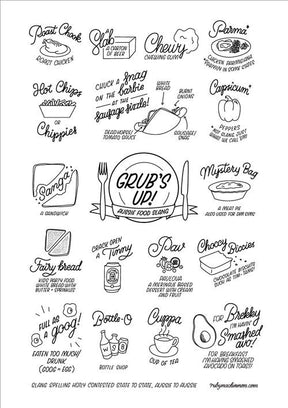 Roast Chook
ROAST CHICKEN
A Slab
A CARTON OF BEER
Chewy
CHEWING GUM
Parma*
CHICKEN PARMIGIANA
Hot Chips
OR
Chippies
CHUCK A Snag
ON THE barbie
AT THE
sausage sizzle!
WHITE BREAD
BURNT ONIONS
DEAD HORSE/
TOMATO SAUCE
SAUSAGE/
SNAG
Capsicum*
PEPPERS
Sanga
A SANDWICH
GRUB'S
UP!
AUSSIE FOOD SLANG
Mystery Bag
A MEAT PIE
Fairy bread
KIDS PARTY FOOD
WHITE BREAD WITH
BUTTER + SPRINKLES
CRACK OPEN
A Tinny
BEER
Pav
PAVLOVA
A MERINGUE BASED
DESSERT WITH CREAM
AND FRUIT
Choccy Biccies
CHOCOLATE BISCUITS
SUCH AS TIM-TAMS
FULL AS
a goog!
EATEN TOO MUCH/
DRUNK
(GOOG = EGG)
Bottle-O
BOTTLE SHOP
Cuppa
CUP OF TEA
FOR Brekky
I'M HAVIN'
Smashed
avo!
FOR BREAKFAST
I'M HAVING SMASHED
AVOCADO ON TOAST
SLANG SPELLING HOTLY CONTESTED STATE TO STATE, AUSSIE TO AUSSIE